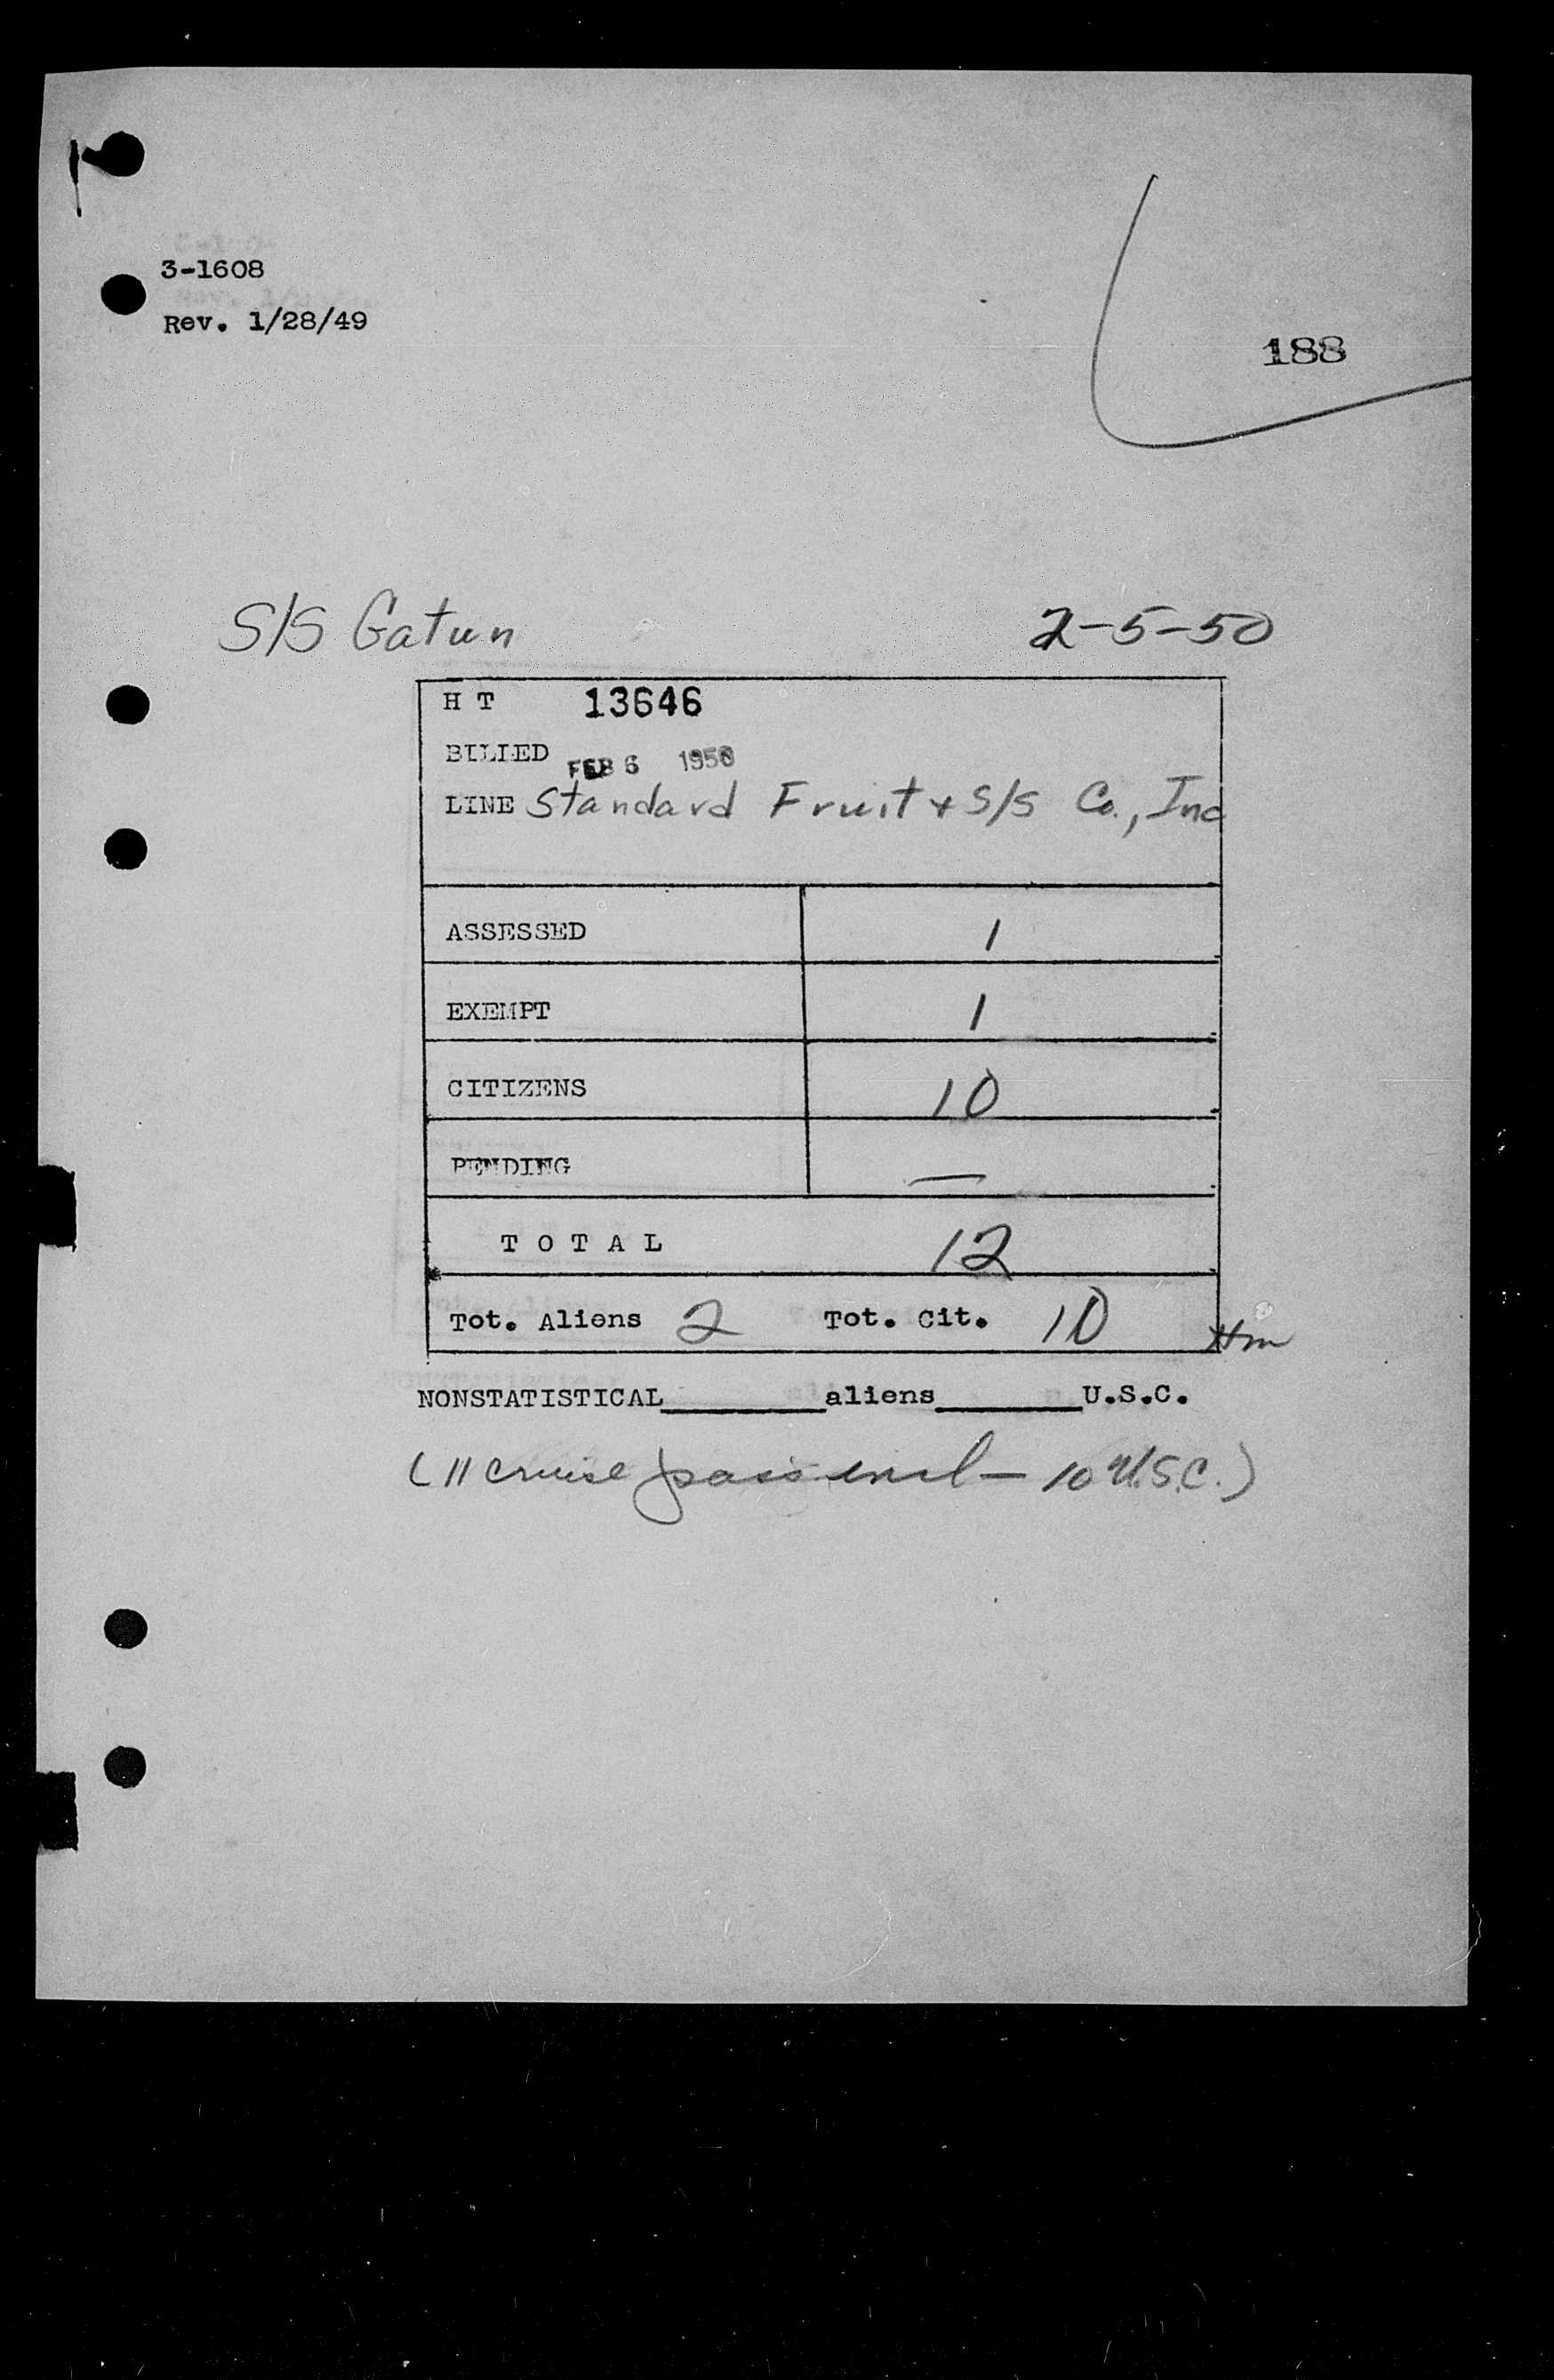 3-1608
Rev. 1/28/49
188
S/S Gatun 2-5-50
H T 13646
BILLED FEB 6 1950
LINE Standard Fruit & S/S Co., Inc
ASSESSED 1
EXEMPT 1
CITIZENS 10
PENDING —
T O T A L 12
Tot. Aliens 2 Tot. Cit. 10
NONSTATISTICAL________aliens_______U.S.C.
(11 cruise pass incl — 10 U.S.C.)